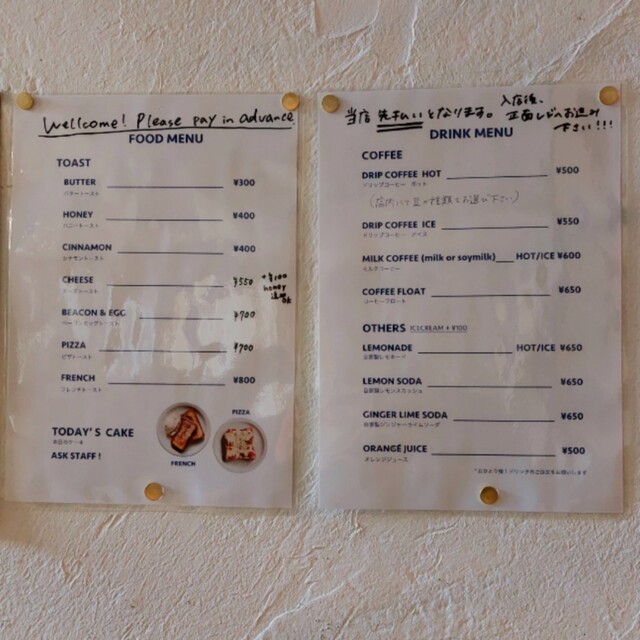 Wellcome! Please pay in advance
FOOD MENU
TOAST
BUTTER ¥300
バタートースト
HONEY ¥400
ハニートースト
CINNAMON ¥400
シナモントースト
CHEESE ¥550
チーズトースト
+¥100
honey
BEACON & EGG ¥700
ベーコンエッグトースト
PIZZA ¥700
ピザトースト
FRENCH ¥800
フレンチトースト
TODAY'S CAKE
本日のケーキ
ASK STAFF!
PIZZA
FRENCH
当店 先払いとなります。
入店後、
正面レジへお進み
下さい!!!
DRINK MENU
COFFEE
DRIP COFFEE HOT ¥500
ドリップコーヒー ホット
DRIP COFFEE ICE ¥550
ドリップコーヒー アイス
MILK COFFEE (milk or soymilk) HOT/ICE ¥600
ミルクコーヒー
COFFEE FLOAT ¥650
コーヒーフロート
OTHERS ICECREAM + ¥100
LEMONADE HOT/ICE ¥650
自家製レモネード
LEMON SODA ¥650
自家製レモンスカッシュ
GINGER LIME SODA ¥650
自家製ジンジャーライムソーダ
ORANGE JUICE ¥500
オレンジジュース